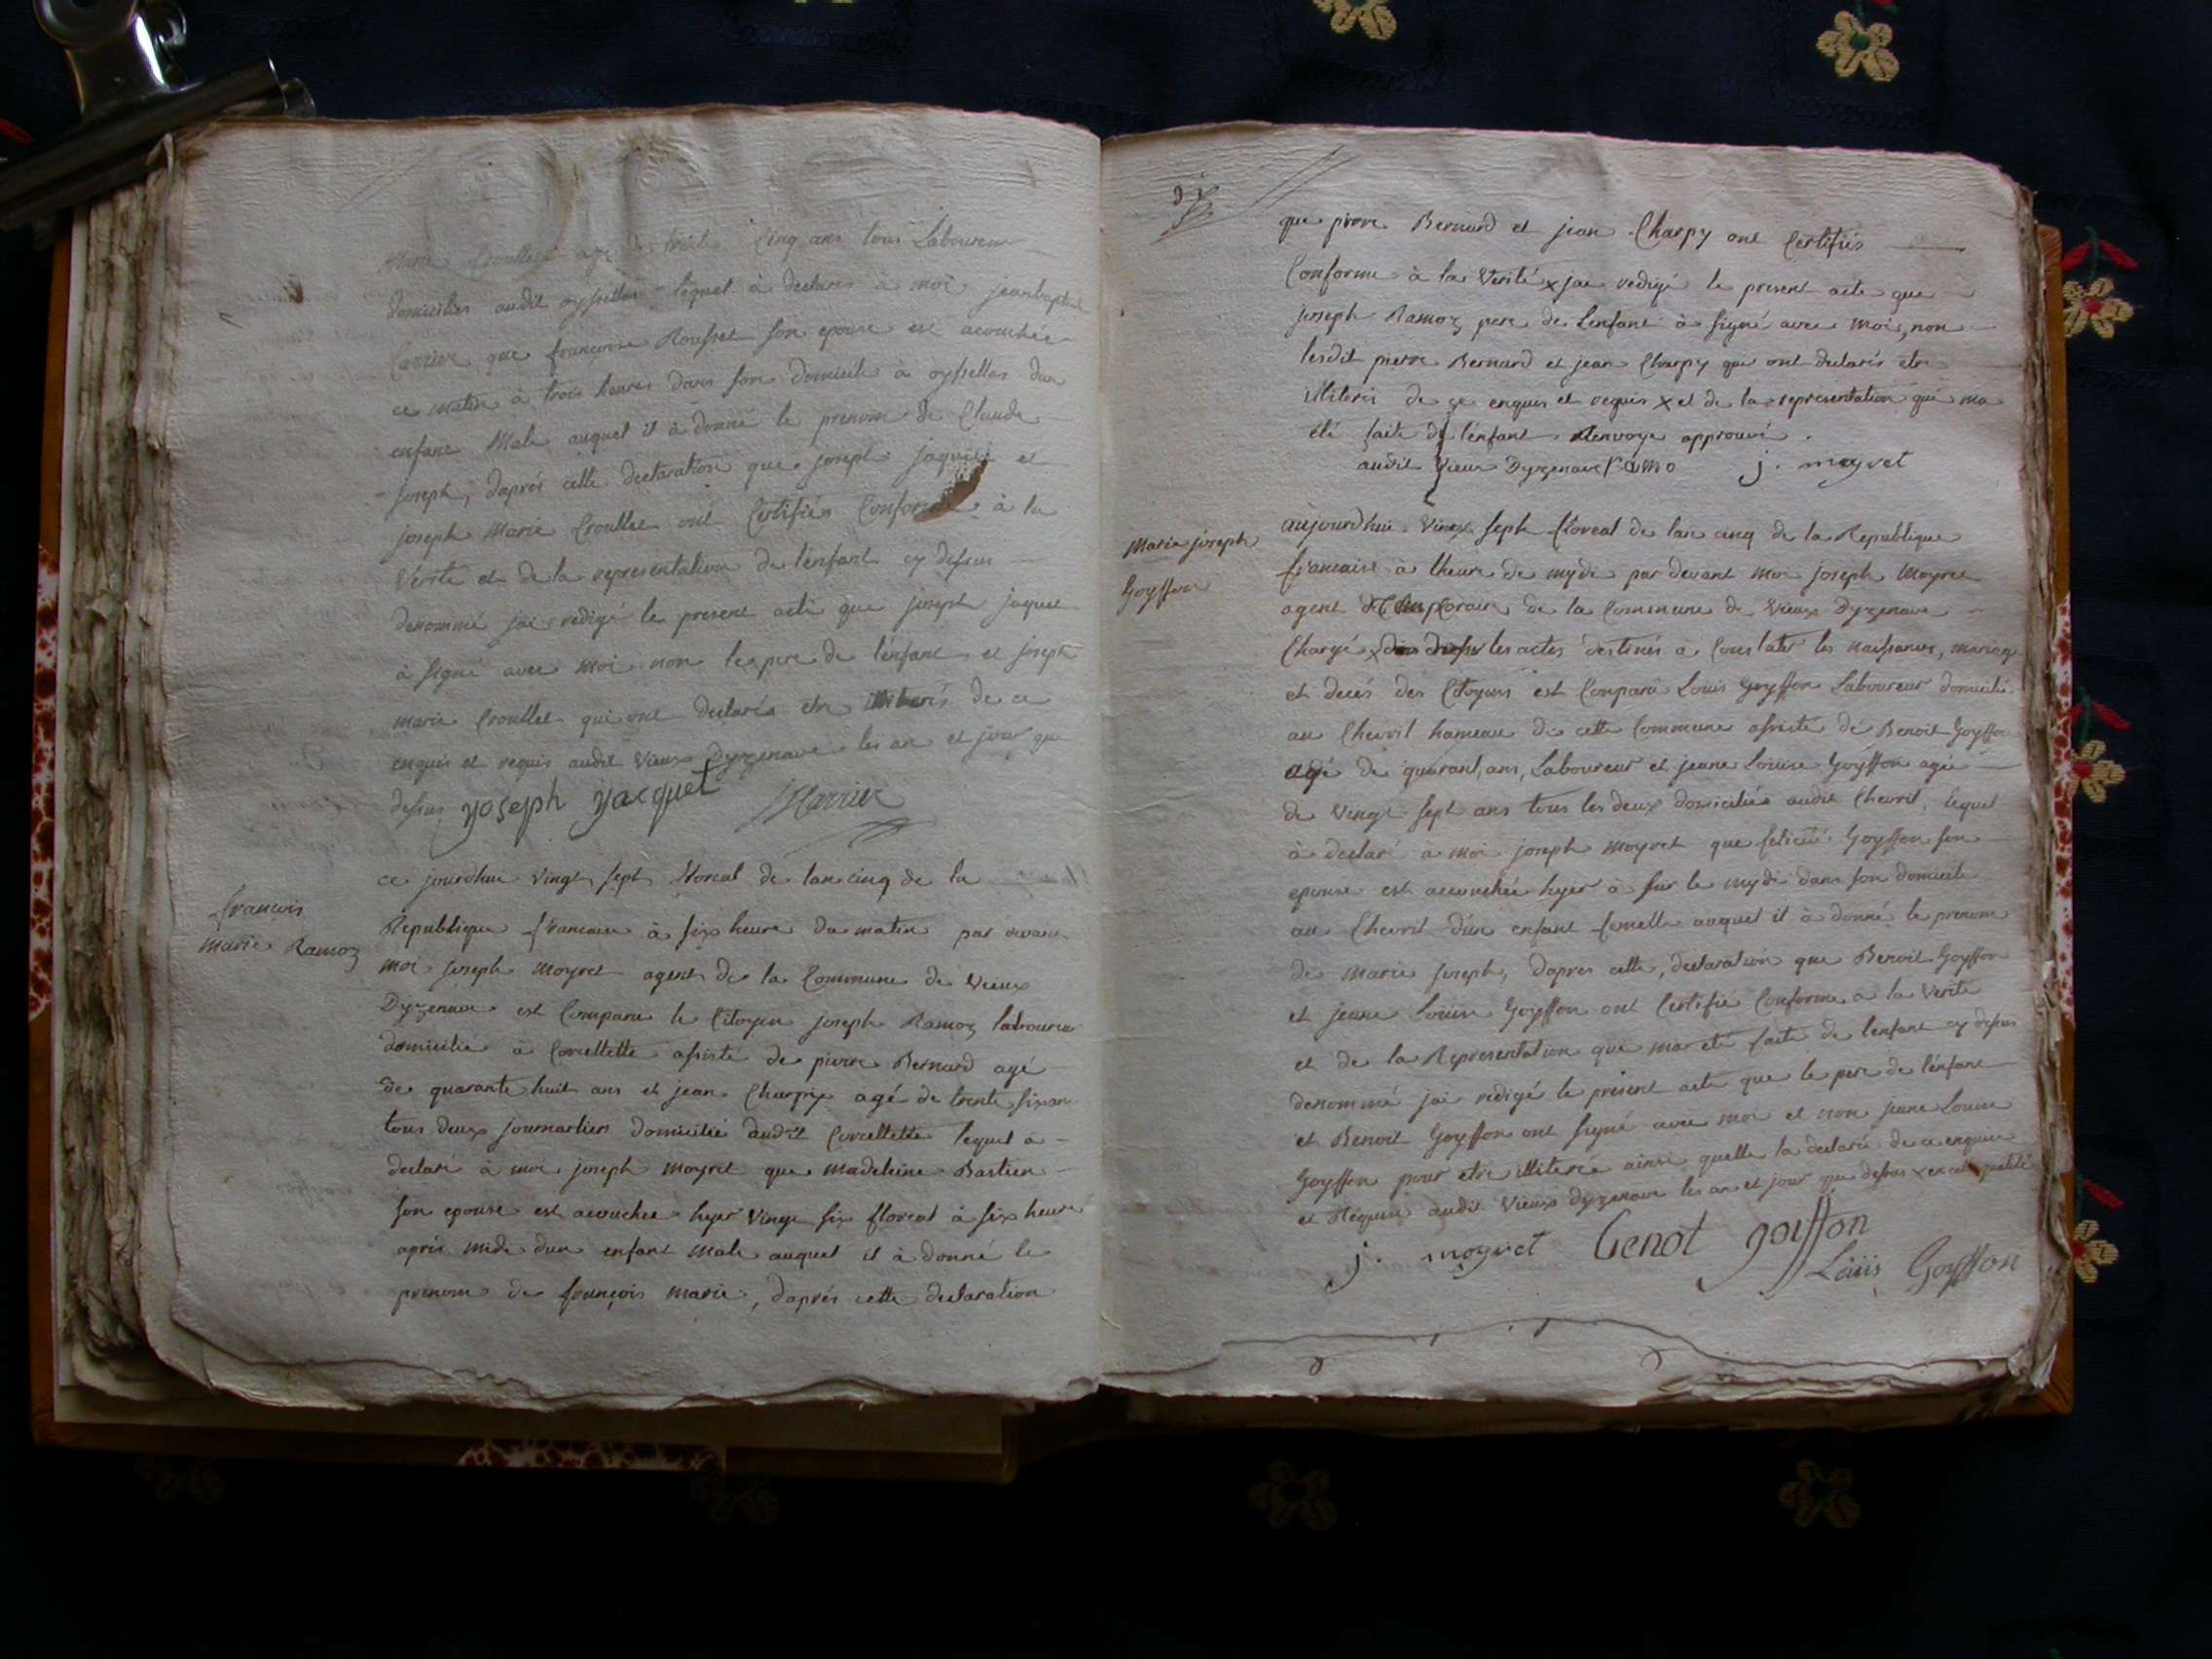 Marie Croullet agé de trente Cinq ans tous Laboureur
domiciliés audit oyssellas lequel à declarés à moi jeanbaptiste
Carrier que françoise Rousset son epouse est acouchée
ce matin à trois heures dans son domicile à oyssellas dun
enfant Male auquel il à donné le prenom de Claude
joseph, daprés cette declaration que joseph jaquet et
joseph Marie Croullet ont Certifiés Conforme à la
Verité et de la representation de lenfant cy dessus
denommé jai redigé le present acte que joseph jaquet
à signé avec moi non le pere de lenfant et joseph
marie Croullet qui ont declarés etre illiterés de ce
enquis et requis audit Vieux Dyzenave les an et jour que
dessus yoseph yacquet JCarrier
françois
marie Ramoz
ce jourdhui Vingt sept floreal de lan cinq de la
Republique francaise à six heure du matin par devant
moi joseph moyret agent de la Commune de Vieux
Dyzenave est Comparu le Citoyen joseph Ramoz laboureur
domicilié à Corcellette assisté de pierre Bernard agé
de quarante huit ans et jean Charpy agé de trente six an
tous deux journaliers domicilié audit Corcellette lequel à
declaré à moi joseph moyret que madeleine Bastien
son epouse est acouchee hyer Vingt six floreal à six heure
aprés midi dun enfant male auquel il à donné le
prenom de françois marie, daprés cette declaration
que pierre Bernard et jean Charpy ont Certifiés
Conforme à la Verité x jai redigé le present acte que
joseph Ramoz pere de Lenfant à signé avec moi, non
lesdit pierre Bernard et jean Charpy qui ont declarés etre
illiterés de ce enquis et requis x et de la representation qui ma
été faite de lenfant Renvoye approuvé.
audit Vieux Dyzenave ramo j. moyret
Marie joseph
Goyffon
aujourdhui Vingt sept floreal de lan cinq de la Republique
francaise à lheure de mydi par devant moi joseph Moyret
agent de la Commune de Vieux Dyzenave
Chargé les actes destinés à Constater les naissances, mariage
et decés des Citoyens est Comparu Louis Goyffon Laboureur domicilié
au Chevril hameau de cette Commune assisté de Benoit Goyffon
agé de quarant, ans, Laboureur et jeane Louise Goyffon agée
de Vingt sept ans tous les deux domiciliés audit Chevril, lequel
à declaré à moi joseph moyret que felicité Goyffon son
epouse est accouchée hyer à sur le mydi dans son domicile
au Chevril d'un enfant femelle auquel il à donné le prenom
de marie joseph, dapres cette, declaration que Benoit Goyffon
et jeane Louise Goyffon ont Certifié Conforme à la Verité
et de la Representation que ma eté faite de lenfant cy dessus
denommé jai redigé le present acte que le pere de lenfant
et Benoit Goyffon ont signé avec moi et non jeane Louise
Goyffon pour etre illiterée ainsi quelle la declaré de ce enquise
et Requise audit Vieux Dyzenave les an et jour que dessus x en cette qualité
j. moyret Benot goiffon
Loüis Goyffon